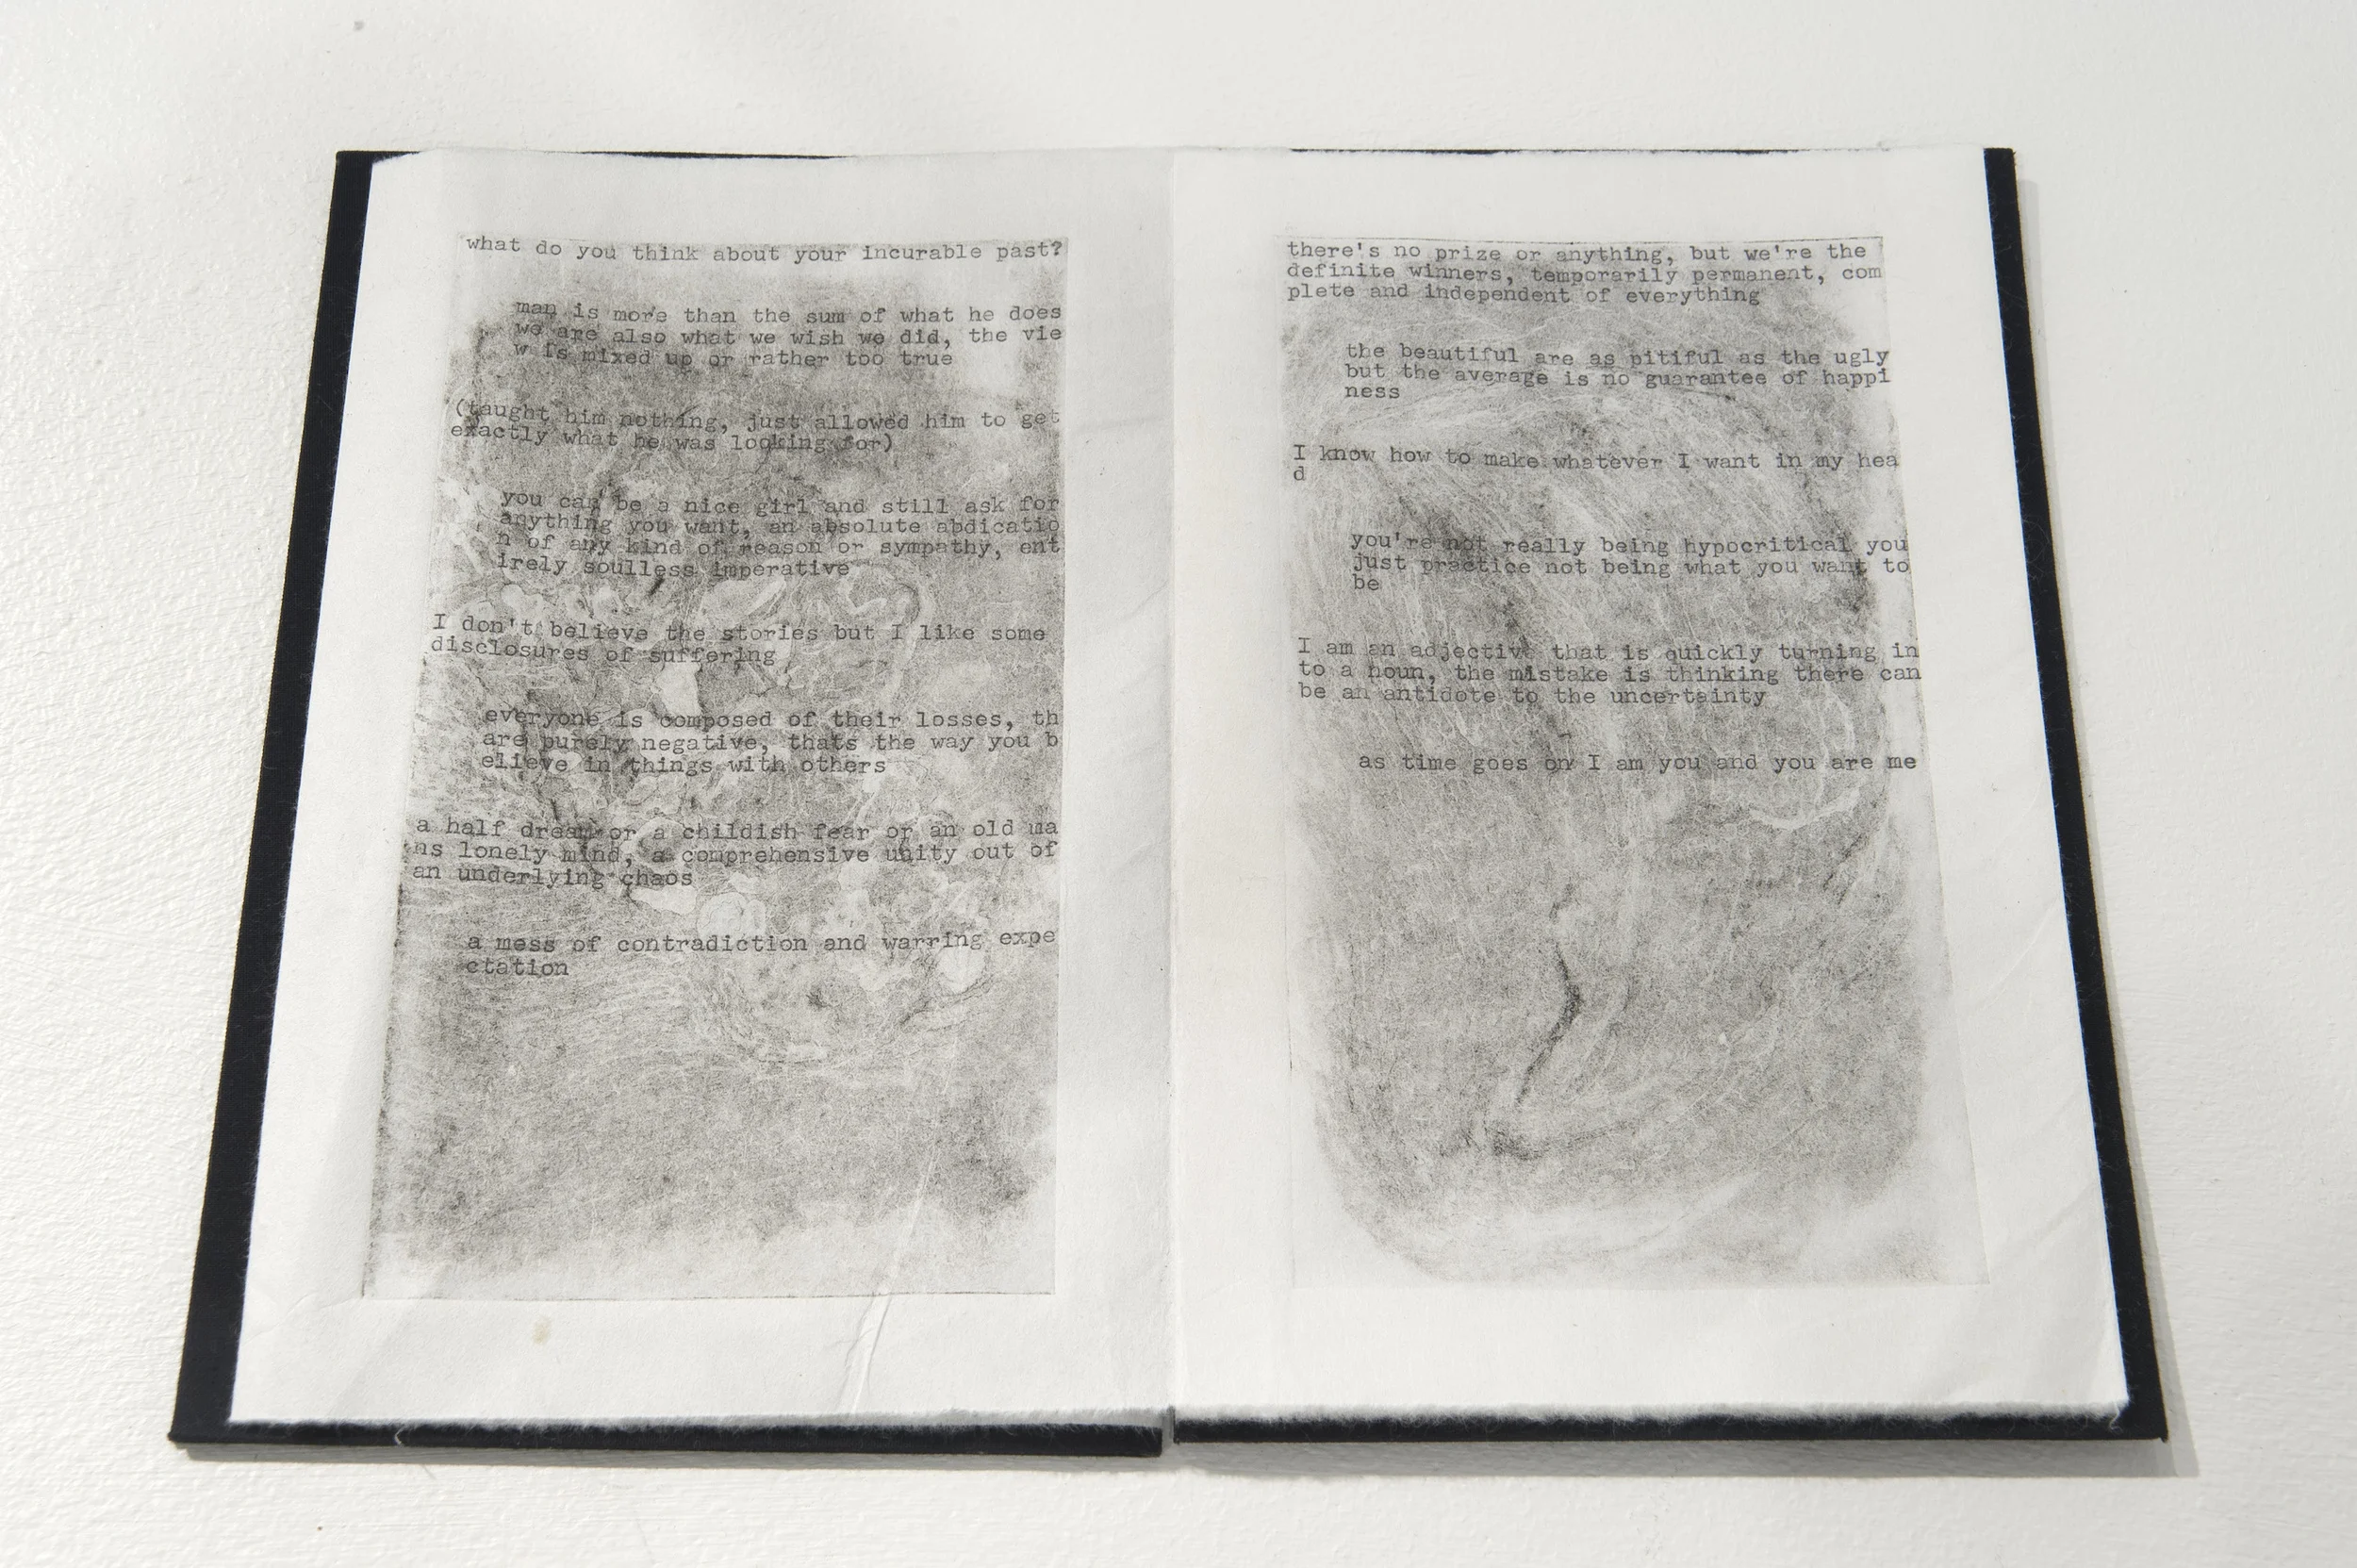 what do you think about your incurable past?
man is more than the sum of what he does
we are also what we wish we did, the vie
w is mixed up or rather too true
(taught him nothing, just allowed him to get
exactly what he was looking for)
you can be a nice girl and still ask for
anything you want, an absolute abdicatio
n of any kind of reason or sympathy, ent
irely soulless imperative
I don't believe the stories but I like some
disclosures of suffering
everyone is composed of their losses, th
are purely negative, thats the way you b
elieve in things with others
a half dream or a childish fear or an old ma
ns lonely mind, a comprehensive unity out of
an underlying chaos
a mess of contradiction and warring expe
ctation
there's no prize or anything, but we're the
definite winners, temporarily permanent, com
plete and independent of everything
the beautiful are as pitiful as the ugly
but the average is no guarantee of happi
ness
I know how to make whatever I want in my hea
d
you're not really being hypocritical you
just practice not being what you want to
be
I am an adjective that is quickly turning in
to a noun, the mistake is thinking there can
be an antidote to the uncertainty
as time goes on I am you and you are me